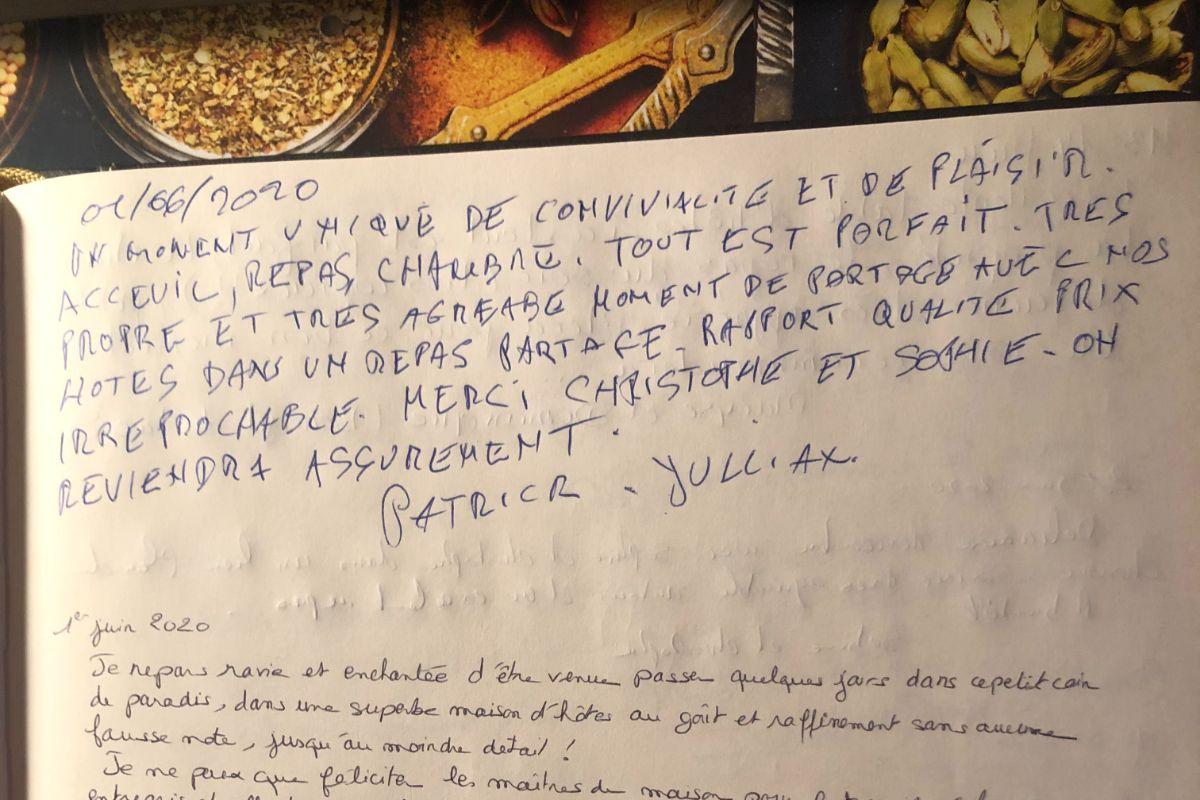 01/06/2020
UN MOMENT UNIQUE DE CONVIVIALITE ET DE PLAISIR.
ACCEUIL, REPAS, CHAMBRE. TOUT EST PARFAIT. TRES
PROPRE ET TRES AGREABE MOMENT DE PARTAGE AVEC NOS
HOTES DANS UN REPAS PARTAGE. RAPPORT QUALITE PRIX
IRREPROCHABLE. MERCI CHRISTOPHE ET SOPHIE. ON
REVIENDRA ASSUREMENT.
PATRICK. JULLIAX.
1er juin 2020
Je repars ravie et enchantée d'être venue passer quelques jours dans ce petit coin
de paradis, dans une superbe maison d'hôtes au goût et raffinement sans aucune
fausse note, jusqu'au moindre détail !
Je ne peux que féliciter les maîtres de maison pour